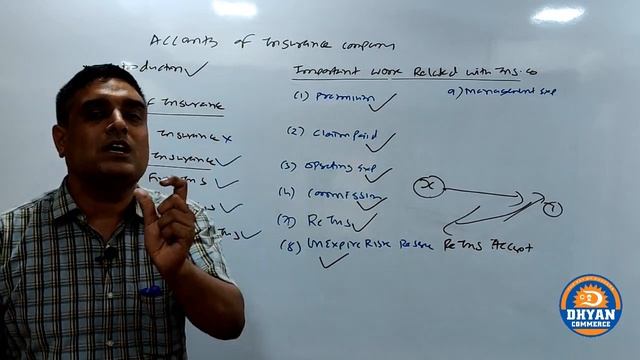 Accounts of Insurance company
Introduction ✓
of Insurance
Insurance x
Insurance ✓
Fire Ins ✓
Ins ✓
Important work Related with Ins. co
(1) Premium ✓
(2) Claim Paid ✓
(3) operating Exp ✓
(4) Commission ✓
(7) Re Ins ✓
(8) UnExpire Risk Reserve ✓
9) Management Exp
X
Y
Re Ins Accept
DHYAN
COMMERCE